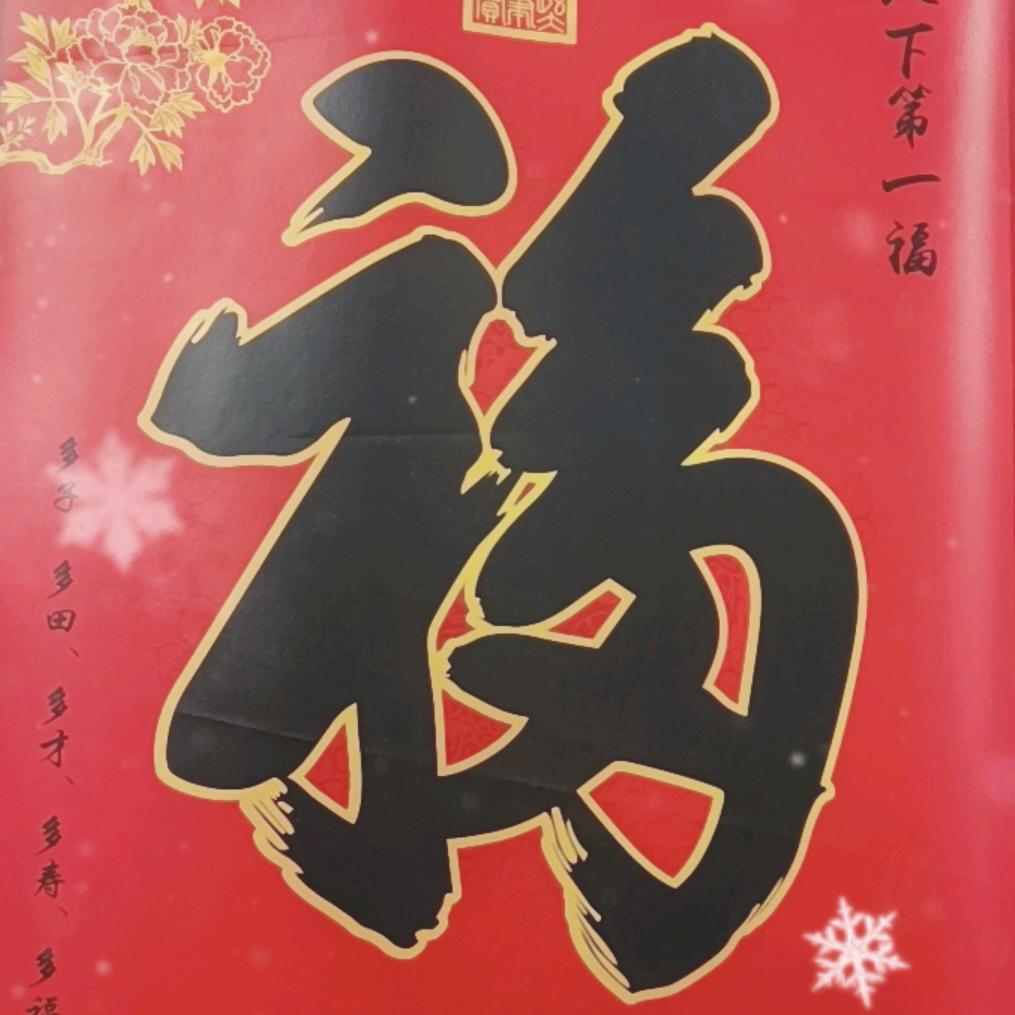 下第一福
福
多子、多田、多才、多寿、多福